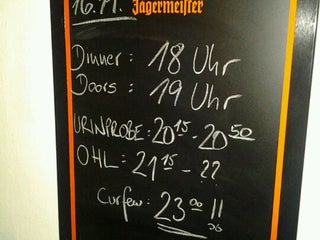 16.11. Jägermeister
Dinner: 18 Uhr
Doors: 19 Uhr
URINPROBE: 20 15 - 20 50
OHL: 21 15 - ??
Curfew: 23 00 !!